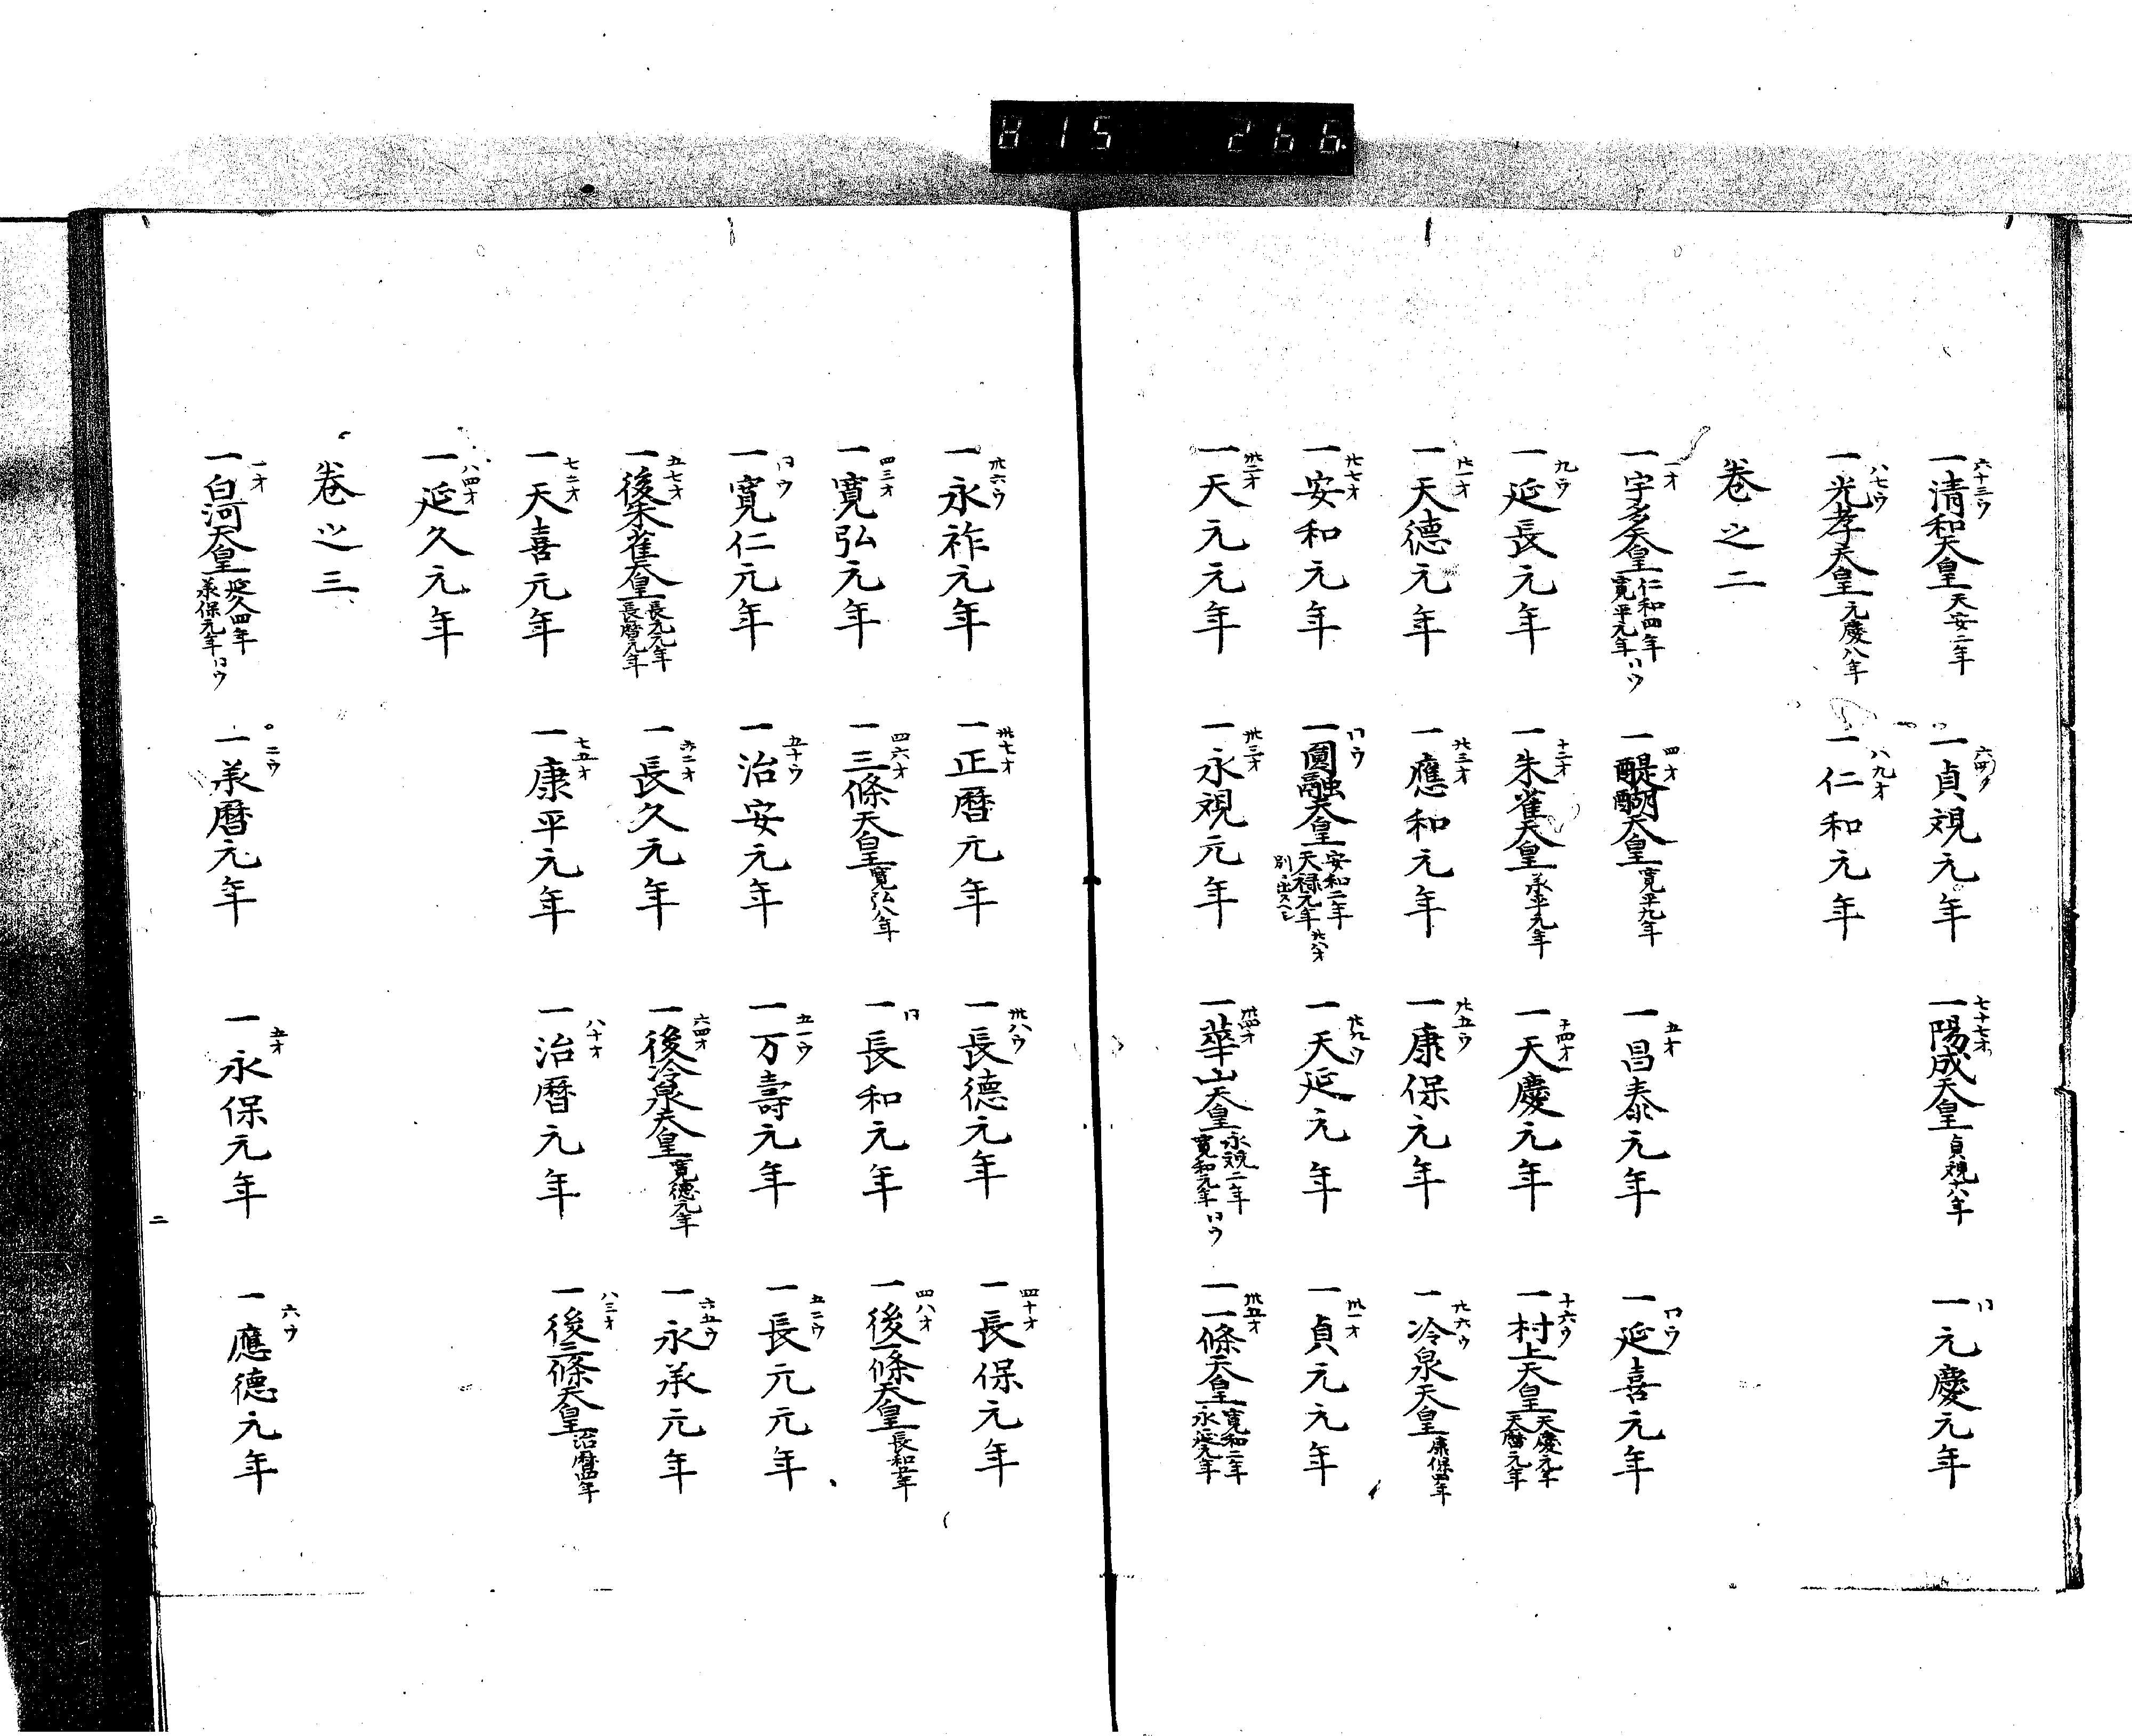 815 266
一清和天皇 天安二年 六十三ウ 一貞観元年 一陽成天皇 貞観十八年 七十七オ 一元慶元年 〃
一光孝天皇 元慶八年 八七ウ 一仁和元年 八九オ
巻之二
一宇多天皇 仁和四年 寛平元年 〃ウ 一オ 一醍醐天皇 寛平九年 四オ 一昌泰元年 五オ 一延喜元年 〃ウ
一延長元年 九ウ 一朱雀天皇 承平元年 十二オ 一天慶元年 十四オ 一村上天皇 天慶元年 天暦元年 十六ウ
一天徳元年 廿一オ 一應和元年 廿三オ 一康保元年 廿五ウ 一冷泉天皇 康保四年 廿六ウ
一安和元年 廿七オ 一圓融天皇 安和二年 天禄元年 廿八オ 〃ウ 一天延元年 廿九ウ 一貞元元年 卅一オ
一天元元年 卅二オ 一永観元年 卅三オ 一華山天皇 永観二年 寛和元年 〃ウ 卅四オ 一一條天皇 寛和二年 永延元年 卅五オ
一永祚元年 卅六ウ 一正暦元年 卅七オ 一長徳元年 卅八ウ 一長保元年 四十オ
一寛弘元年 四三オ 一三條天皇 寛弘八年 四六オ 一長和元年 〃 一後一條天皇 長和五年 四八オ
一寛仁元年 〃ウ 一治安元年 五十ウ 一万壽元年 五一ウ 一長元元年 五二ウ
一後朱雀天皇 長元九年 長暦元年 五七オ 一長久元年 六二オ 一後冷泉天皇 寛徳元年 六四オ 一永承元年 六五ウ
一天喜元年 七二オ 一康平元年 七五オ 一治暦元年 八十オ 一後三條天皇 治暦四年 八三オ
一延久元年 八四オ
巻之三
一白河天皇 延久四年 承保元年 〃ウ 一オ 一承暦元年 二ウ 一永保元年 五オ 一應徳元年 六ウ
二